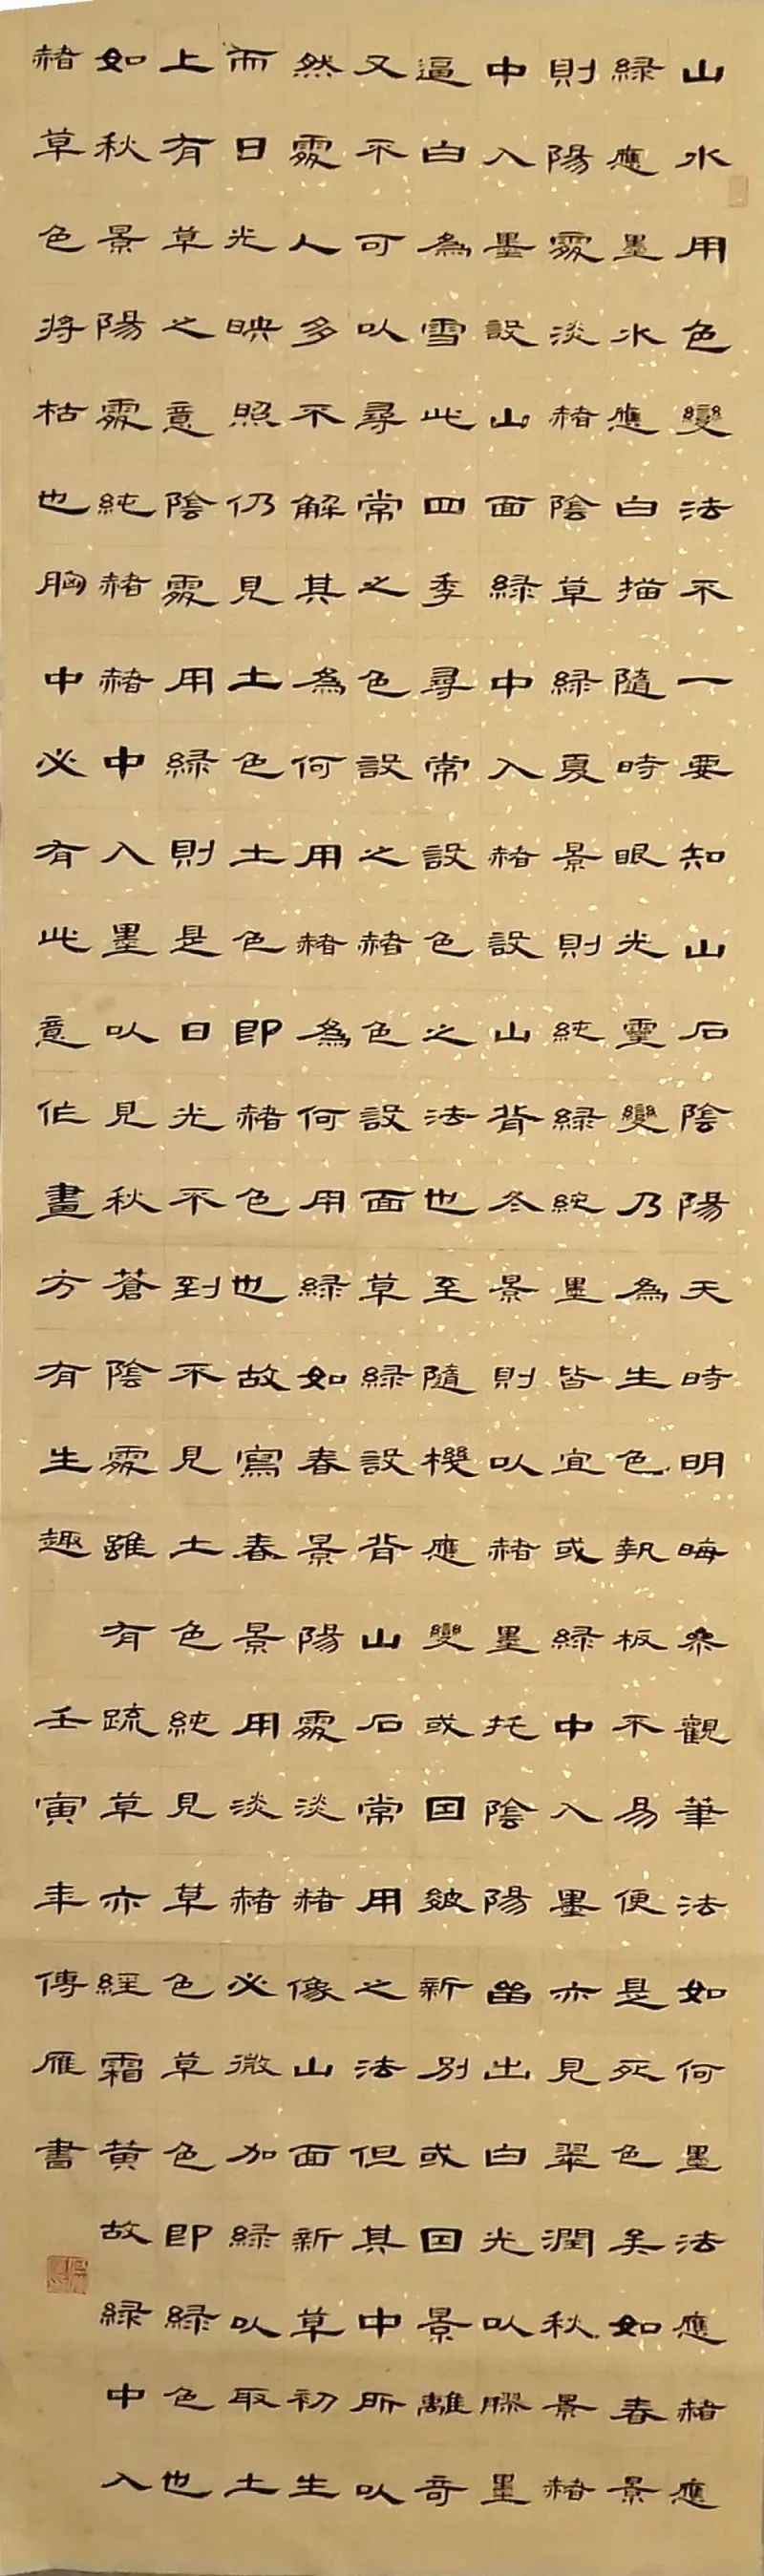 山水用色變法不一要知山石陰陽天時明晦參觀筆法如何墨法應赭應
綠應墨水應白描隨時眼光靈變乃為生色執板不易便是死色矣如春景
則陽處淡赭陰草綠夏景則純綠純墨皆宜或綠中入墨亦見翠潤秋景赭
中入墨設山面綠中入赭設山背冬景則以赭墨托陰陽留出白光以膠墨
逼白為雪此四季尋常設色之法也至隨機應變或因皴新別或因景離奇
又不可以尋常之色設之赭色設面草綠設背山石常用之法但其中所以
然處人多不解其為何用赭為何用綠如春景陽處淡赭像山面新草初生
而日光映照仍見土色土色即赭色也故寫春景用淡赭必微加綠以取土
上有草之意陰處用綠則是日光不到不見土色純見草色草色即綠色也
如秋景陽處純赭赭中入墨以見秋蒼陰處雖有疏草亦經霜黃故綠中入
赭草色將枯也胸中必有此意作畫方有生趣 壬寅年傅雁書